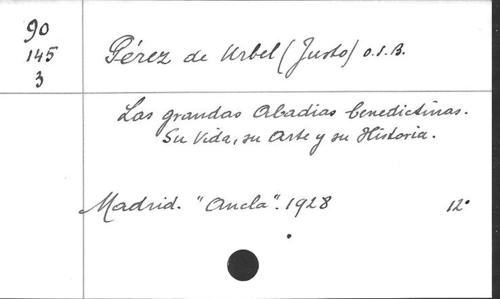 90
145
3
Pérez de Urbel (Justo) O.S.B.
Las grandas Abadias benedictinas.
Su Vida, su Arte y su Historia.
Madrid. "Ancla". 1928 12º